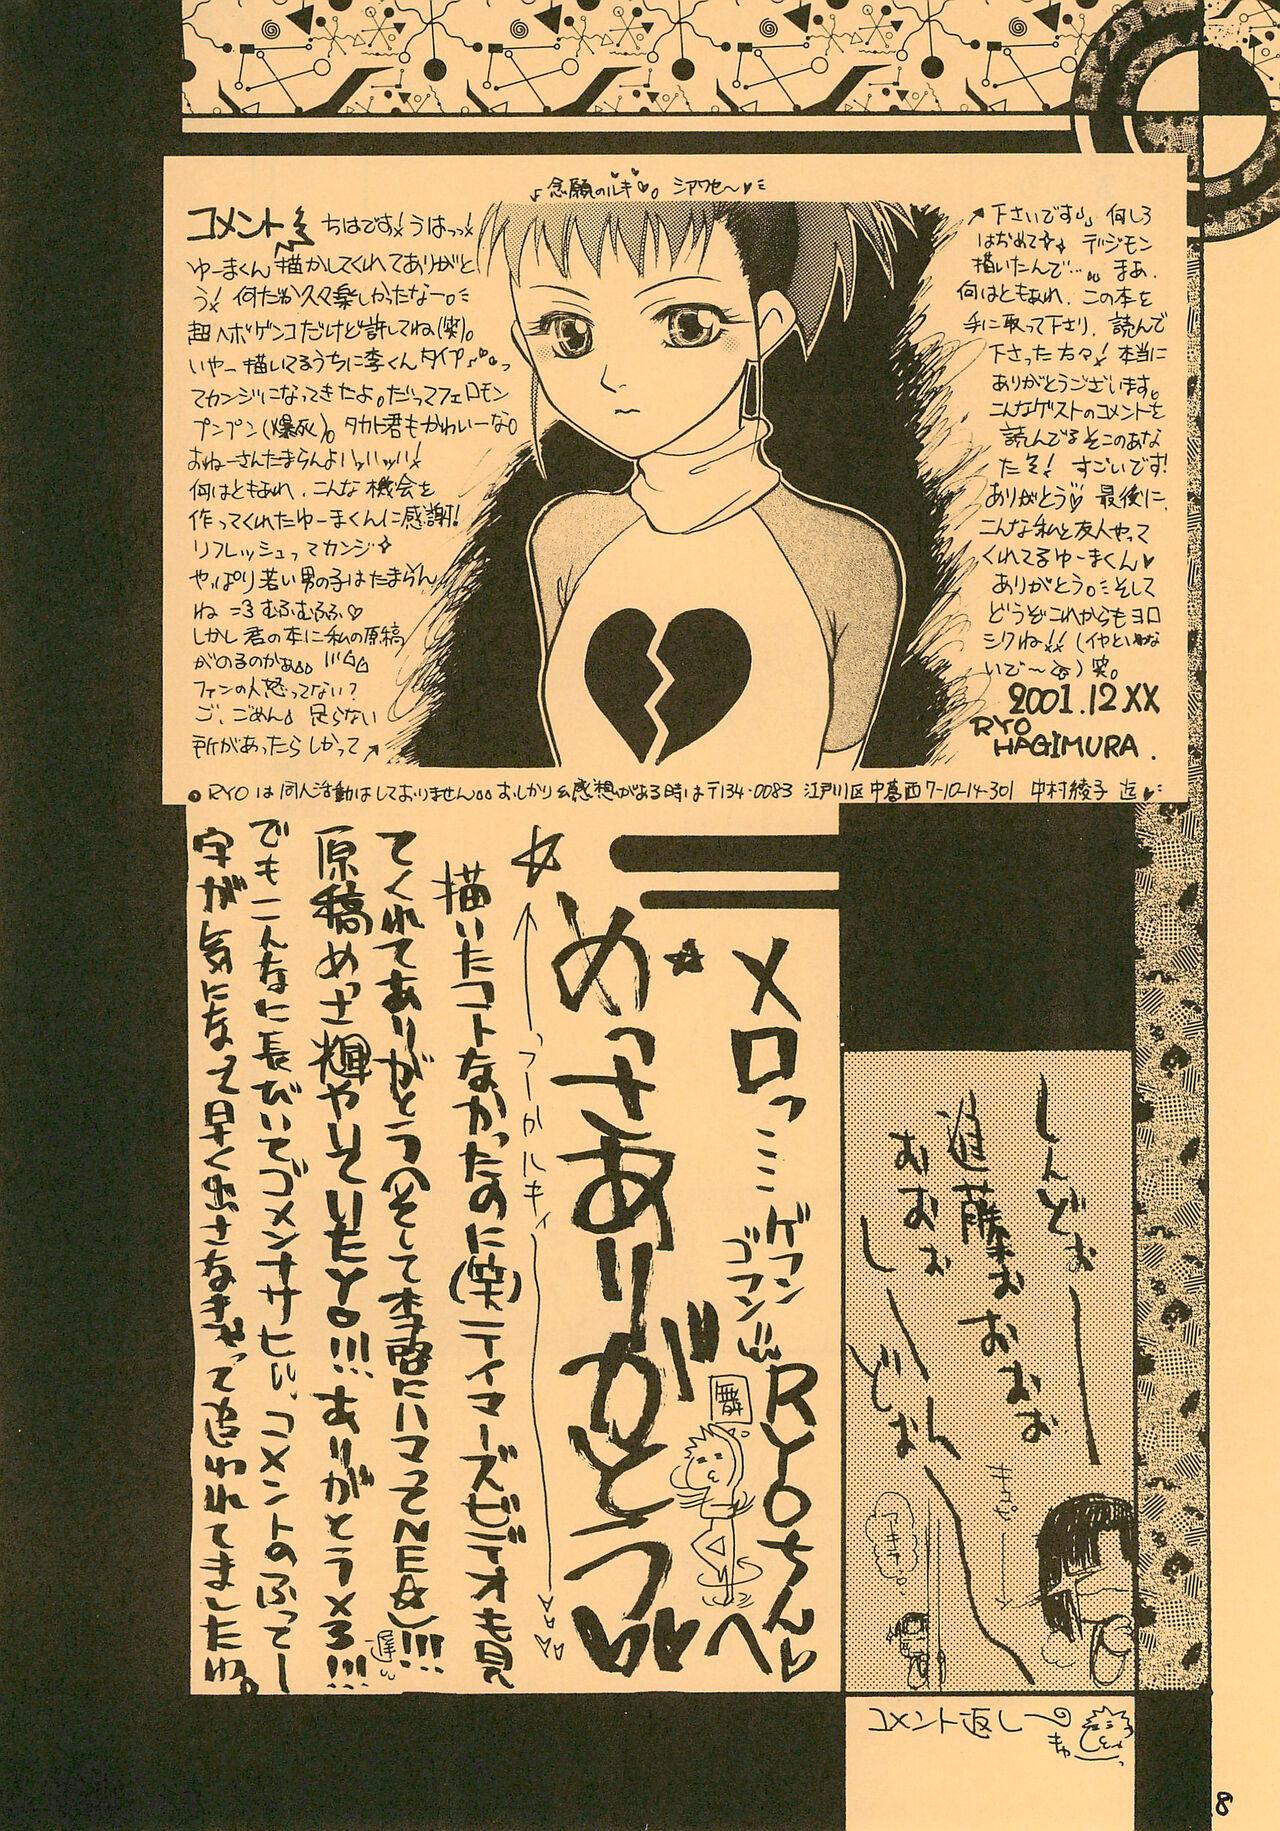 ♪念願のルキ♥。シアワセ〜♥ミ
コメント
ちはです!うはっっ!
ゆーまくん描かしてくれてありがと
う!何だか久々楽しかったなー。ミ
超ヘボゲンコだけど許してね(笑)。
いやー描いてるうちに李くんタイプ♪っ
てカンジになってきたよ。だってフェロモン
プンプン(爆死)。タカト君もかわいーな。
おねーさんたまらんよハッハッハッ!
何はともあれ、こんな機会を
作ってくれたゆーまくんに感謝!
リフレッシュってカンジ☆
やっぱり若い男の子はたまらん
ね=3むふむふふ♡
しかし君の本に私の原稿
がのるのかぁ
ファンの人怒ってない?
ご、ごめん 足らない
所があったらしかって↗
↗下さいです♪何しろ
はじめて☆デジモン
描いたんで…。まぁ、
何はともあれ、この本を
手に取って下さり、読んで
下さった方々!本当に
ありがとうございます。
こんなゲストのコメントを
読んでるそこのあな
たそ!すごいです!
ありがとう♡最後に、
こんな私と友人やって
くれてるゆーまくん♥
ありがとう。ミそして
どうぞこれからもヨロ
シクね!!(イヤといわな
いで〜)笑。
2001.12XX
RYO
HAGIMURA.
●RYOは同人活動はしておりません おしかり&感想がある時は〒134-0083 江戸川区中葛西7-10-14-301 中村綾子 迄♥ミ
しんどぉー
進藤ぉおおおお
おおぉぉ
しーんどぉー
キュピーン
コメント返し
キュッ
メロっ ゲフンゴフン RYOちんへ
舞
★めっさありがとう
☆←っフーかルキィ→
描いたコトなかったのに(笑)テイマーズビデオも見
てくれてありがとう(そして李啓にハマってNE☆)!!!
遅
原稿めっさ輝やいていたYO!!!ありがとうメろ!!!
でもこんなに長びいてゴメンナサヒ、コメントのふってー
字が気になって早く出さなきゃって思われてましたわ。
8